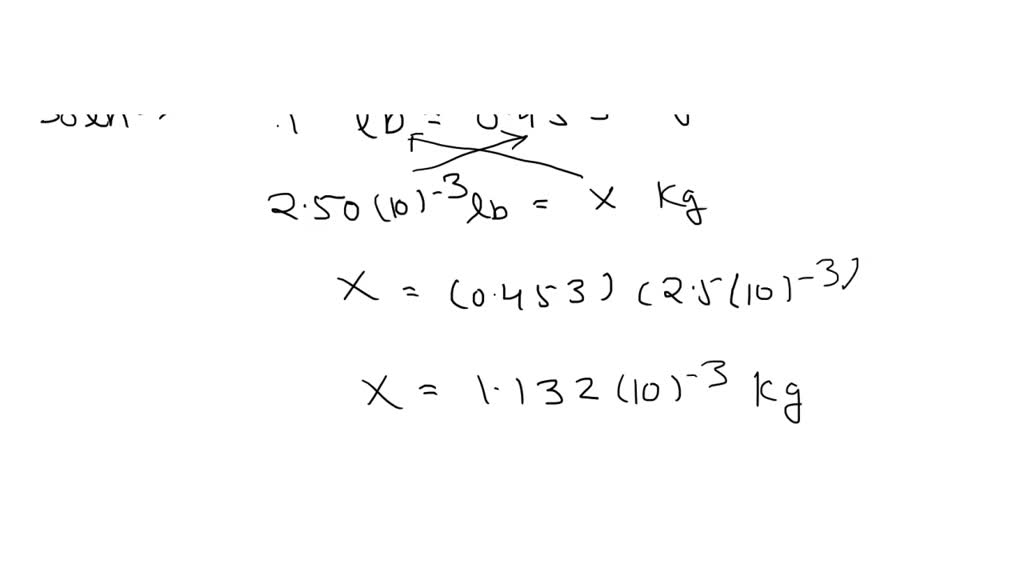 lb =
2.50 (10)^-3 lb = x kg
x = (0.453) (2.5(10)^-3)
x = 1.132 (10)^-3 kg